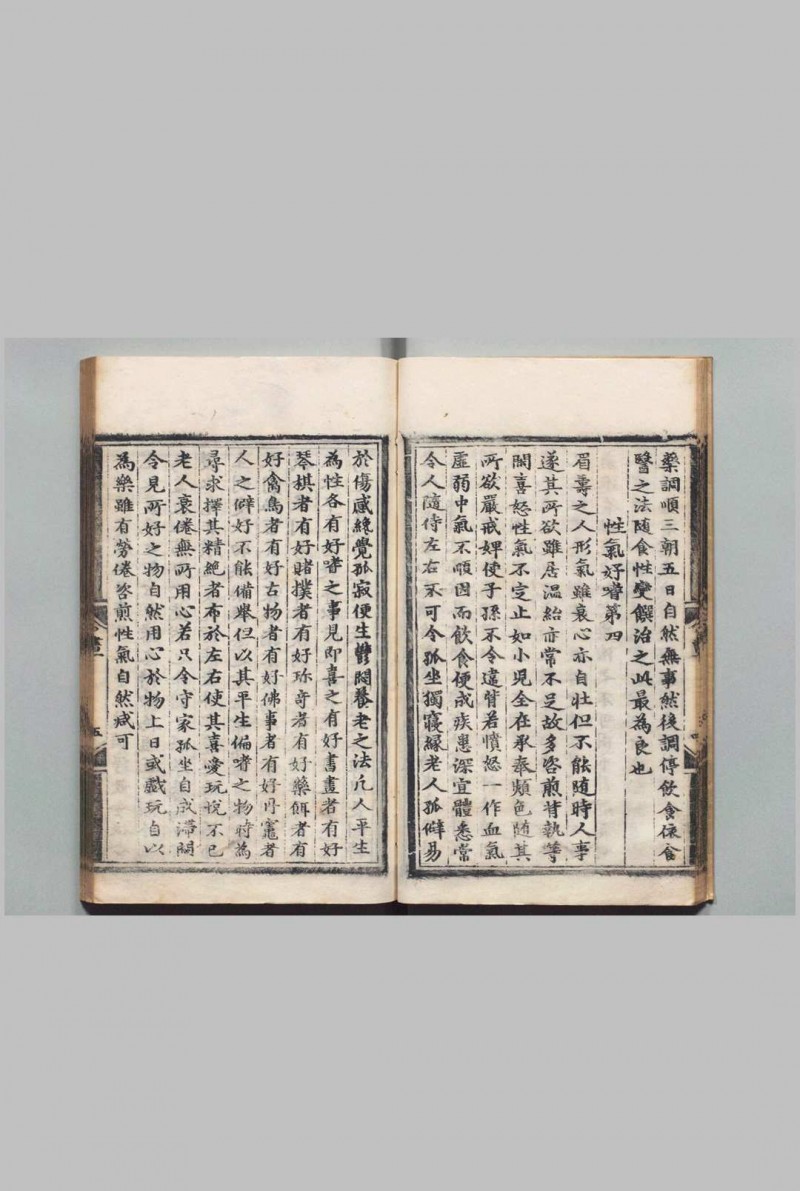 藥調順三朝五日自然無事然後調停飲食依食
醫之法隨食性變饌治之此最為良也
性氣好嗜第四
眉壽之人形氣雖衰心亦自壯但不能隨時人事
遂其所欲雖居溫給亦常不足故多咨煎背執等
閑喜怒性氣不定止如小兒全在承奉顏色隨其
所欲嚴戒婢使子孫不令違背若憤怒一作血氣
虛弱中氣不順因而飲食便成疾患深宜體悉常
令人隨侍左右不可令孤坐獨寢緣老人孤僻易
於傷感纔覺孤寂便生鬱悶養老之法凡人平生
為性各有好嗜之事見即喜之有好書畫者有好
琴棋者有好賭撲者有好珎奇者有好藥餌者有
好禽鳥者有好古物者有好佛事者有好丹竈者
人之僻好不能備舉但以其平生偏嗜之物時為
尋求擇其精絕者布於左右使其喜愛玩悅不已
老人衰倦無所用心若只令守家孤坐自成滯悶
今見所好之物自然用心於物上日或戲玩自以
為樂雖有勞倦咨煎性氣自然減可
五